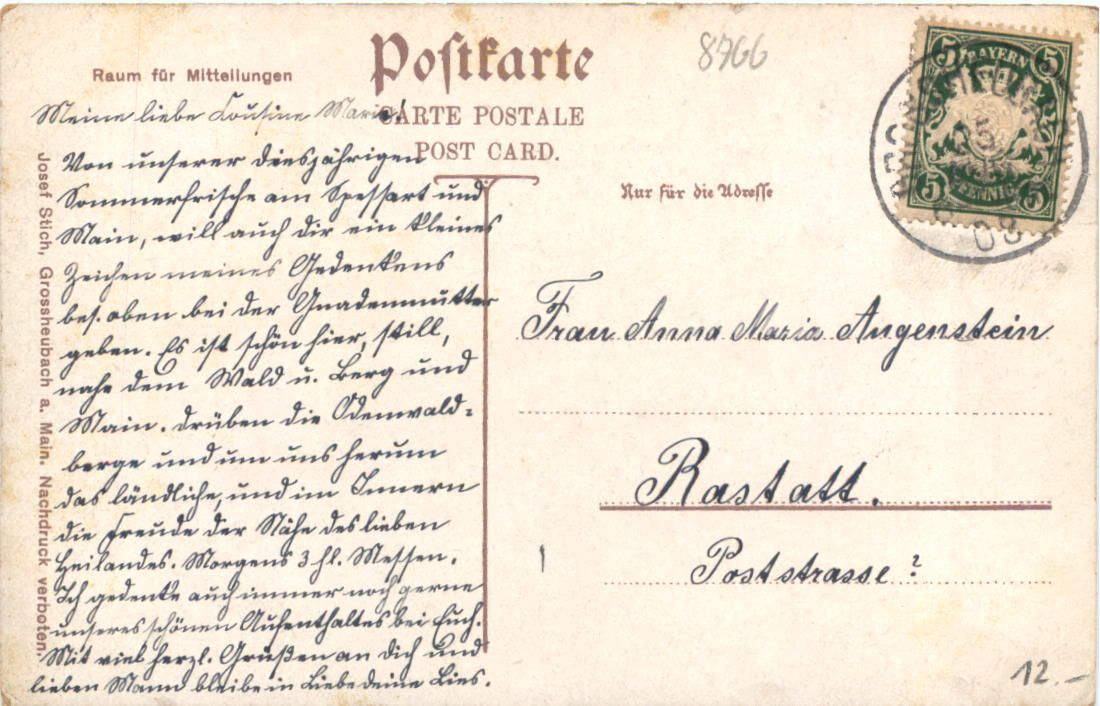 Postkarte
8766
Raum für Mitteilungen
CARTE POSTALE
POST CARD.
Nur für die Adresse
5 BAYERN 5
5 PFENNIG 5
08
Meine liebe Cousine Marie!
Von unserer diesjährigen
Sommerfrische am Spessart und
Main, will auch dir ein kleines
Zeichen meines Gedenkens
bes. oben bei der Gnadenmutter
geben. Es ist schön hier, still,
nahe dem Wald u. Berg und
Main. Drüben die Odenwald-
berge und um uns herum
das ländliche, und im Innern
die Freude der Nähe des lieben
Heilandes. Morgens 3 hl. Messen.
Ich gedenke auch immer noch gerne
unseres schönen Aufenthaltes bei Euch.
Mit viel herzl. Grüßen an Dich und
lieben Mann bleibe in Liebe deine Lies.
Josef Stich, Grossheubach a. Main. Nachdruck verboten.
Frau Anna Maria Augenstein
Rastatt.
Poststrasse?
12.-